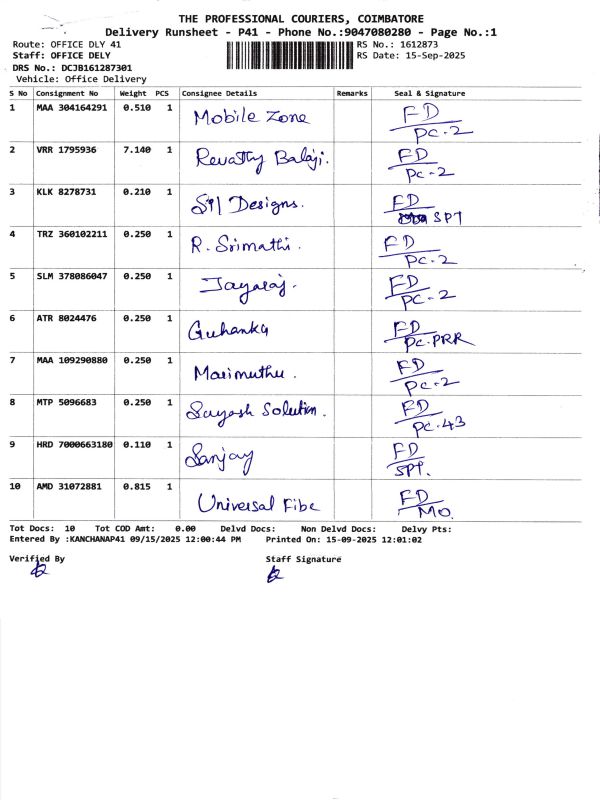 THE PROFESSIONAL COURIERS, COIMBATORE
Delivery Runsheet - P41 - Phone No.:9047080280 - Page No.:1
Route: OFFICE DLY 41 RS No.: 1612873
Staff: OFFICE DELY RS Date: 15-Sep-2025
DRS No.: DCJB161287301
Vehicle: Office Delivery
S No Consignment No Weight PCS Consignee Details Remarks Seal & Signature
1 MAA 304164291 0.510 1 Mobile Zone FD
PC-2
2 VRR 1795936 7.140 1 Revathy Balaji. FD
PC-2
3 KLK 8278731 0.210 1 Designs. FD
SPT
4 TRZ 360102211 0.250 1 R. Srimathi. FD
PC-2
5 SLM 378086047 0.250 1 Jayaraj. FD
PC-2
6 ATR 8024476 0.250 1 Guhanka FD
PC-PRR
7 MAA 109290880 0.250 1 Marimuthu. FD
PC-2
8 MTP 5096683 0.250 1 Sayash Solution. FD
PC-43
9 HRD 7000663180 0.110 1 Sanjay FD
SPT.
10 AMD 31072881 0.815 1 Universal Fibe FD
MO.
Tot Docs: 10 Tot COD Amt: 0.00 Delvd Docs: Non Delvd Docs: Delvy Pts:
Entered By :KANCHANAP41 09/15/2025 12:00:44 PM Printed On: 15-09-2025 12:01:02
Verified By Staff Signature